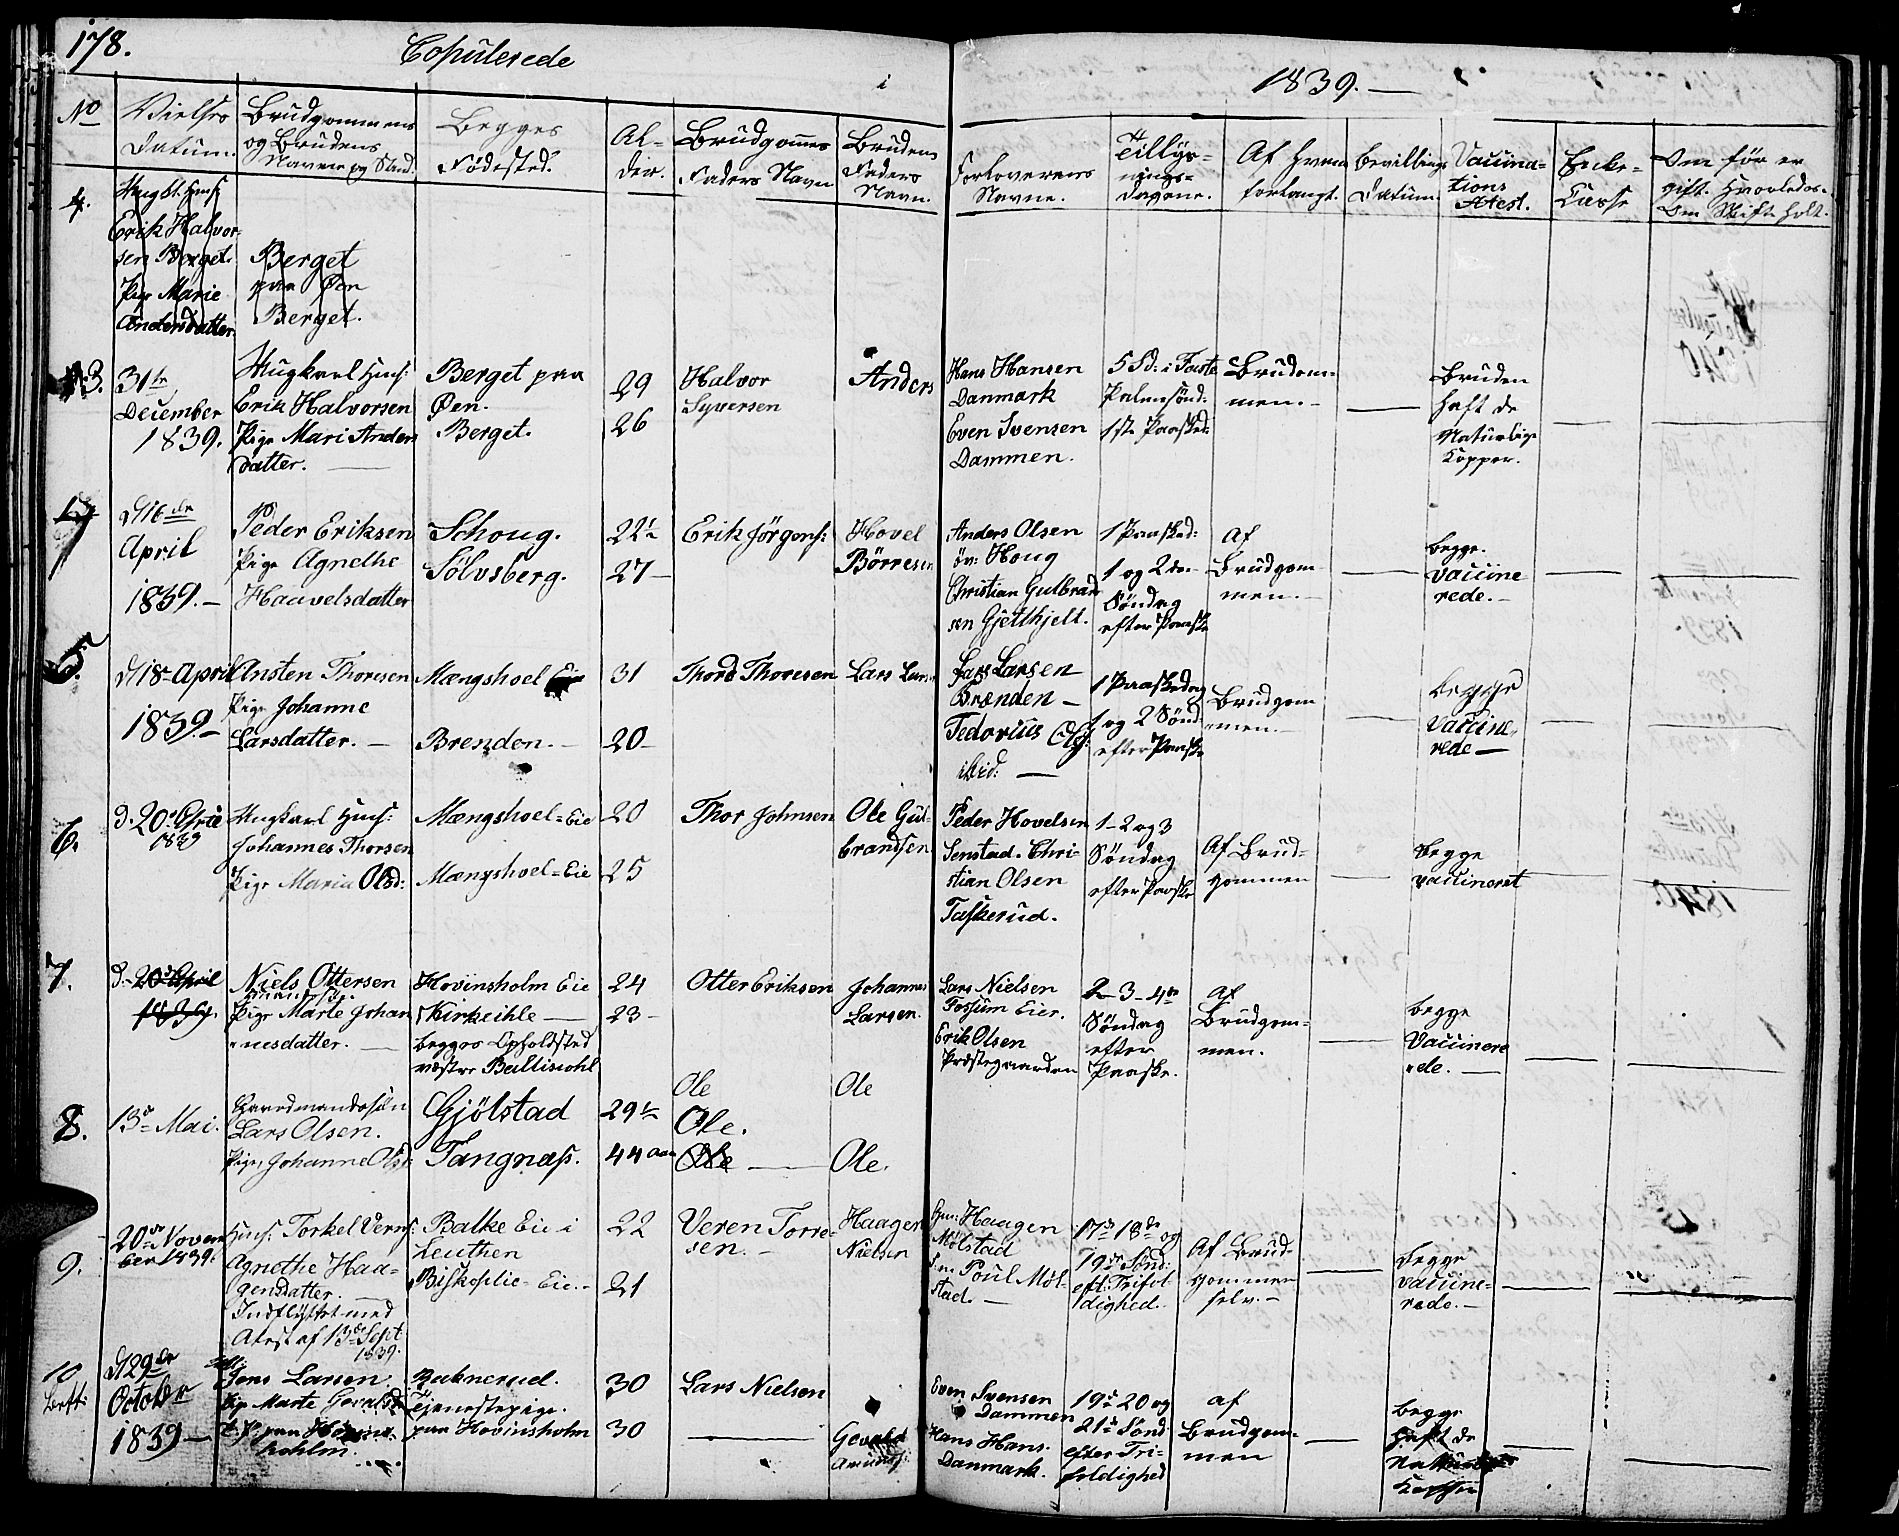 178. Copulerede i 1839. —
No
Vielses Datum.
Brudgommens og Brudens Navne og Stand.
Begges Fødested.
Al-
der.
Brudgomes Faders Navn
Brudens Faders Navn.
Forloverens Navne.
Tillys-
nings-
dagene.
Af hvem forlangt.
Bevillings Datum.
Vaccina-
tions Atest.
Enke-
Casse
Om før er gift. Hvorledes.
Om Skifte holt.
4.
Ungkl. Huus:
Erik Halvor-
sen Berget.
Pige Marie
Andersdatter.
Berget
paa Øen
Berget.
3.
31te
December
1839.
Ungkarl Huus:
Erik Halvorsen
Pige Mari Anders
datter. —
Berget paa
Øen.
Berget.
29
26
Halvor
Syversen
Anders
Hans Hansen
Danmark
Even Svensen
Dammen.
5 Sd: i Faste
Palmesønd:
1ste Paasked:
Brudom-
men. -
Bruden
haft de
Naturlige
Kopper.
4
d 16de
April
1839. —
Peder Eriksen
Pige Agnethe
Haavelsdatter
Schoug.
Sölvsberg.
22½
27 —
Erik Jörgens:
Hovel
Börresen
Anders Olsen
öv: Houg
Christian Gulbrand
sen Gjetthjelt.
1 Paasked:
1 og 2den
Søndag
efter Paaske
Af
Brudgom-
men. —
begge.
vaccine
rede. —
5.
d 18 April
1839 —
Ansten Thoresen
Pige Johanne
Larsdatter. —
Mængshoel Eie
Brenden. —
31
20 —
Thord Thoresen
Lars Lars
Lars Larsen
Brænden —
Tedorius Ols:
ibid: —
1 Paaskedag
1 og 2 Sønd:
efter Paaske
Brudgom
men. —
begge
vaccine,
rede —
6.
d. 20 April
1839
Ungkarl Huus:
Johannes Thorsen
Pige Maria Olsd:
Mængshoel = Eie
Mængshoel = Eie
20
25
Thor Johnsen
Ole Gul-
brandsen
Peder Hovelsen
Senstad. Chri-
stian Olsen
Taskerud.
1 - 2 og 3
Søndag
efter Paaske
Af Brud-
gommen
Begge
vaccineret
7.
d. 20 April
1839.
Niels Ottersen
Pige Marte Johan
nesdatter. —
Hovinsholm Eie
Kirkeihle —
begges Opholdsted
vestre Ballisiohl
24
23 -
Otter Eriksen
Johannes
Larsen.
Lars Nielsen
Fossum Eier.
Erik Olsen
Præstegaarden
2 - 3 - 4de
Søndag
efter
Paaske.
Af
Brudgom-
men.
begge
Vaccinere
rde. —
8.
13de Mai.
Gaardmandssøn
Lars Olsen.
Pige Johanne Olsd
Gjölstad
Tangnæs.
29½
44 aar
Ole
Ole.
Ole —
Ole
Ole.
9.
20de Novem
ber 1839.
Huus: Torkel Verns:
Agnethe Haa-
gensdatter. —
Indflyttet med
Atest af 13de Sept
1839.
Balke Eie i
Leuthen
Biskoplie - Eie. -
22
21
Veren Torre-
sen. —
Haagen
Nielsen
Haagen
Mölstad
Poul Möl-
stad. —
17de 18de og
19de Sønd:
eft: Trefol
dighed.
Af Brud-
gommen
selv. —
begge
vaccine-
rede. —
10
d 29de
October
1839 —
Jens Larsen
Pige Marte Gevaldsd:
Buknerud.
Tjenestepige.
paa Hovinsholm
30
30
Lars Nielsen
Gevald
Even Svensen
Dammen
Hans Hans.
Danmark.
19de 20 og
21de Sønd
efter Tri-
foldighed
af
Brudgom-
men
begge
haft de
Naturlige
Kopper